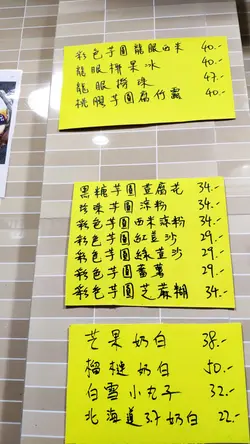 彩色芋圓龍眼西米 40.-
龍眼拼果冰 40.-
龍眼 珠 47.-
桃膠芋圓腐竹露 40.-
黑糖芋圓豆腐花 34.-
珍味芋圓涼粉 34.-
彩色芋圓西米涼粉 34.-
彩色芋圓紅荳沙 29.-
彩色芋圓綠荳沙 29.-
彩色芋圓蕃薯 29.-
彩色芋圓芝蔴糊 34.-
芒果奶白 38.-
榴槤奶白 50.-
白雪小丸子 32.-
北海道3.7奶白 22.-